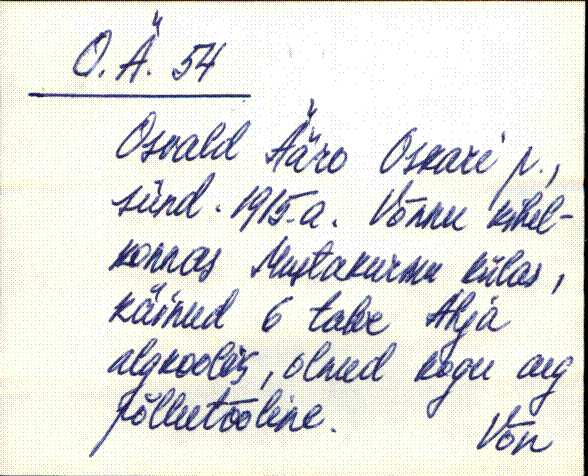 O. Ä. 54
Osvald Ääro Oskari p.,
sünd. 1915. a. Võnnu kihel-
konnas Mustakurmu külas,
käinud 6 talve Ahja
algkoolis, olnud kogu aeg
põllutööline.
Võn